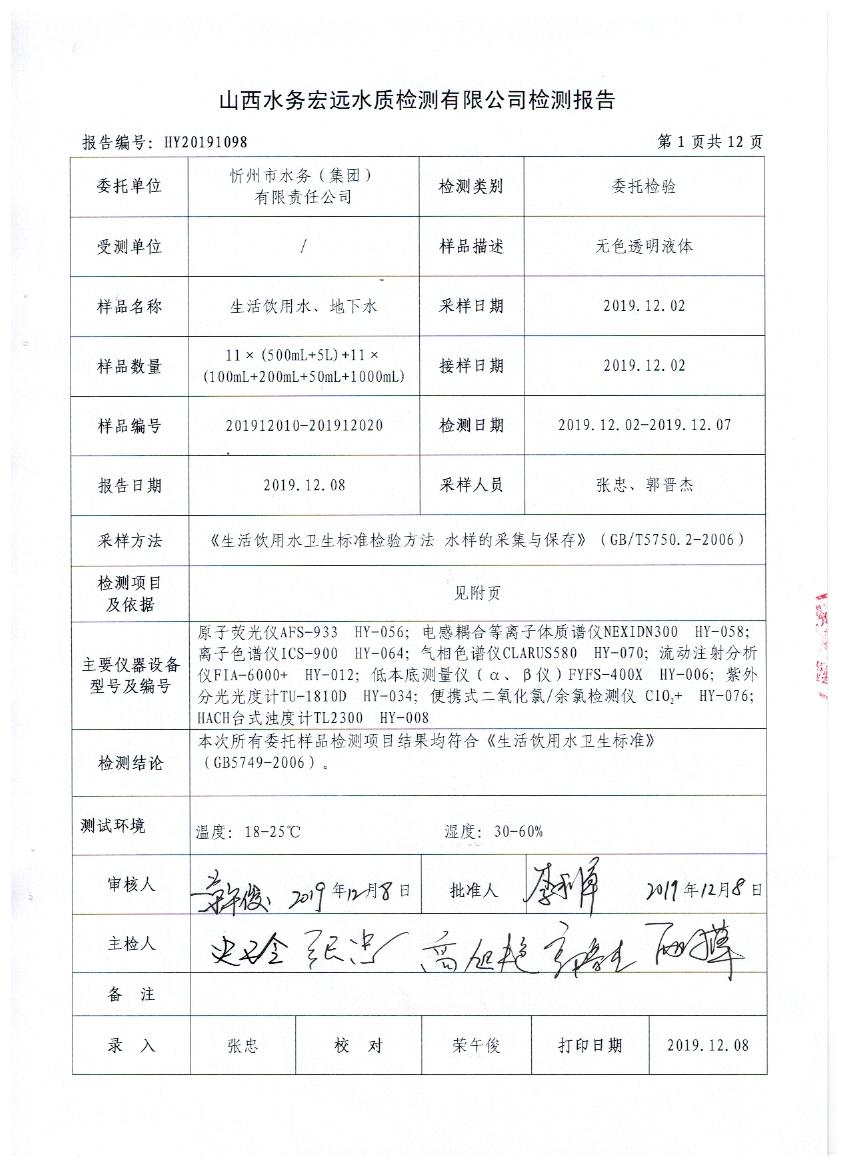 山西水务宏远水质检测有限公司检测报告
报告编号：HY20191098
第 1 页共 12 页
委托单位
忻州市水务（集团）
有限责任公司
检测类别
委托检验
受测单位
/
样品描述
无色透明液体
样品名称
生活饮用水、地下水
采样日期
2019.12.02
样品数量
11×(500mL+5L)+11×
(100mL+200mL+50mL+1000mL)
接样日期
2019.12.02
样品编号
201912010-201912020
检测日期
2019.12.02-2019.12.07
报告日期
2019.12.08
采样人员
张忠、郭晋杰
采样方法
《生活饮用水卫生标准检验方法 水样的采集与保存》（GB/T5750.2-2006）
检测项目
及依据
见附页
主要仪器设备
型号及编号
原子荧光仪AFS-933 HY-056；电感耦合等离子体质谱仪NEXIDN300 HY-058；
离子色谱仪ICS-900 HY-064；气相色谱仪CLARUS580 HY-070；流动注射分析
仪FIA-6000+ HY-012；低本底测量仪（α、β仪）FYFS-400X HY-006；紫外
分光光度计TU-1810D HY-034；便携式二氧化氯/余氯检测仪 ClO₂+ HY-076；
HACH台式浊度计TL2300 HY-008
检测结论
本次所有委托样品检测项目结果均符合《生活饮用水卫生标准》
（GB5749-2006）。
测试环境
温度：18-25℃
湿度：30-60%
审核人
荣午俊 2019年12月8日
批准人
2019年12月8日
主检人
张忠 高旭艳
备 注
录 入
张忠
校 对
荣午俊
打印日期
2019.12.08